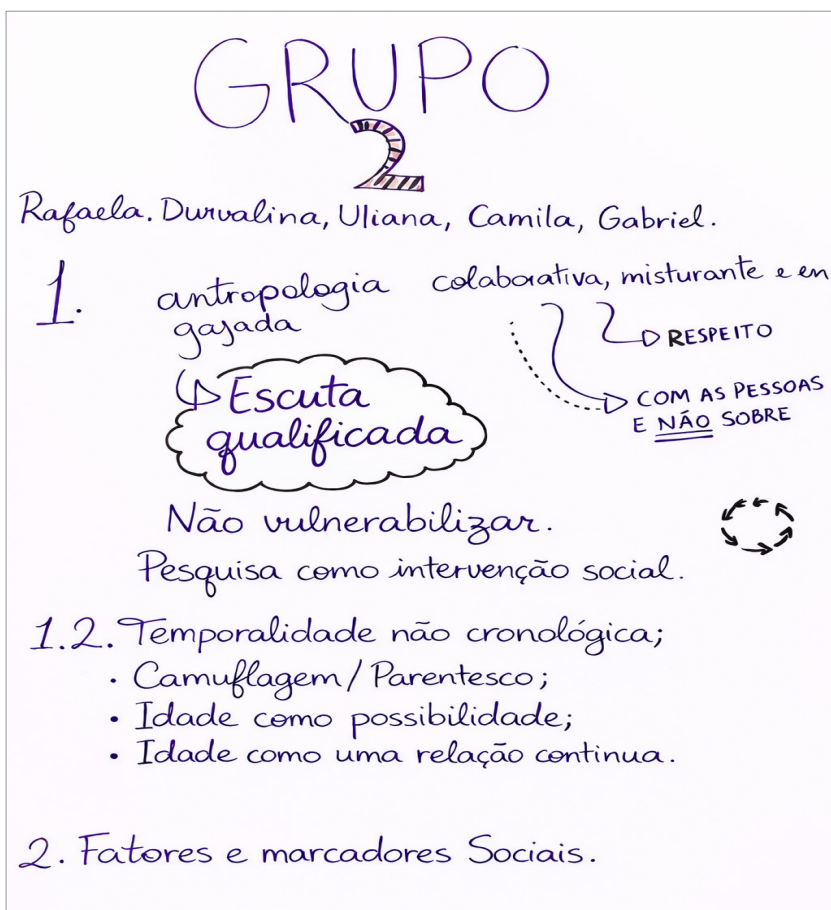 GRUPO
2
Rafaela. Durvalina, Uliana, Camila, Gabriel.
1. antropologia colaborativa, misturante e en
gajada
RESPEITO
Escuta
qualificada
COM AS PESSOAS
E NÃO SOBRE
Não vulnerabilizar.
Pesquisa como intervenção social.
1.2. Temporalidade não cronológica;
• Camuflagem/Parentesco;
• Idade como possibilidade;
• Idade como uma relação continua.
2. Fatores e marcadores Sociais.